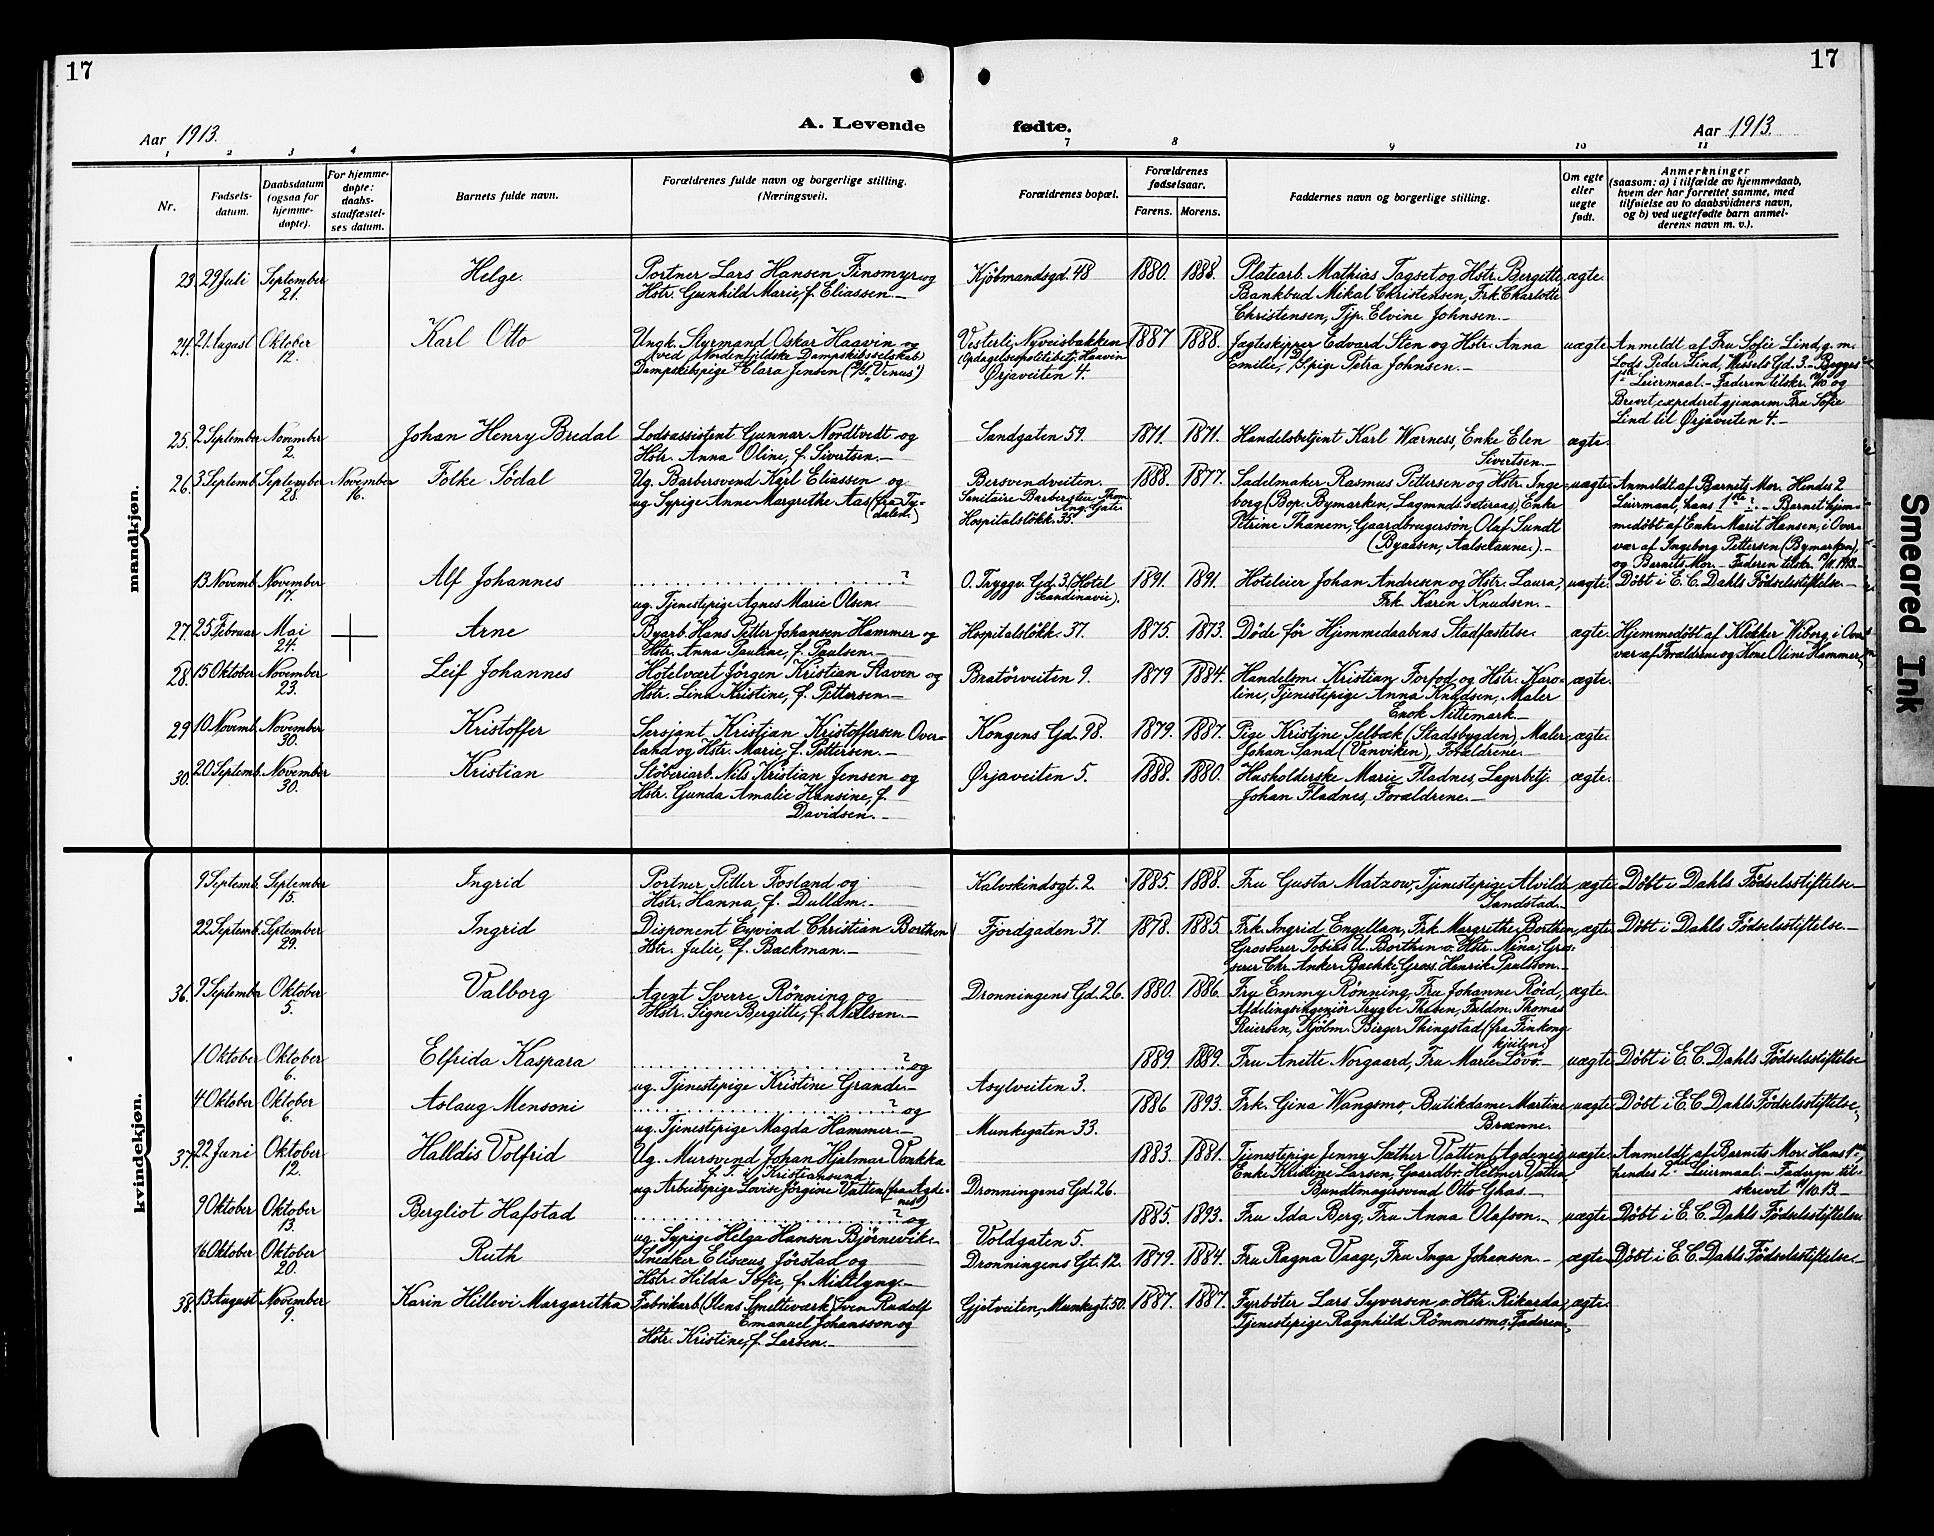 17
17
Aar 1913.
A. Levende
fødte.
Aar 1913.
1 2 3 4 7 8 9 10 11
Nr.
Fødsels-
datum.
Daabsdatum
(ogsaa for
hjemme-
døpte).
For hjemme-
døpte:
daabs-
stadfæstel-
ses datum.
Barnets fulde navn.
Forældrenes fulde navn og borgerlige stilling.
(Næringsvei).
Forældrenes bopæl.
Forældrenes
fødselsaar.
Farens. Morens.
Faddernes navn og borgerlige stilling.
Om egte
eller
uegte
født.
Anmerkninger
(saasom: a) i tilfælde av hjemmedaab,
hvem der har forrettet samme, med
tilføielse av to daabsvidners navn,
og b) ved uegtefødte barn anmel-
derens navn m. v.).
mandkjøn.
23 29 Juli September Helge. Portner Lars Hansen Finsmyr og Kjöbmandsgd. 48 1880. 1888. Platearb. Mathias Tagset og Hstr. Bergitte, ægte.
21. Hstr. Gunhild Marie, f. Eliassen.— Bankbud Mikal Christensen, Frk. Charlotte
Christensen, Tjp. Elvine Johnsen.—
24. 21. August Oktober Karl Otto Ungk. Styrmand Oskar Haavin og Vesterli, Nyveisbakken 1887 1888. Jægteskipper Edvard Sten og Hstr. Anna uægte Anmeldt af Fru Sofie Lind, g. m.
12. (ved Nordenfjeldske Dampskibsselskab) Opdagelsespolitibetj. Haavin Emilie, Pige Petra Johnsen.— Lods Peder Lind, Wessels Gd. 3.— Begges
Dampskibspige Clara Jensen (D/S. "Venus") Ørjaveiten 4. 1ste Leiermaal.— Faderen tilskr. og
Brevet expederet gjennem Fru Sofie
Lind til Ørjaveiten 4.—
25. 2 September November Johan Henry Bredal Lodsassistent Gunnar Nordtvedt og Sandgaten 59. 1871. 1871. Handelsbetjent Karl Wærness, Enke Elen ægte
2. Hstr. Anna Oline, f. Sivertsen.— Sivertsen.—
26. 3 Septemb. September November Folke Södal Ug. Barbersvend Karl Eliassen og Bersvendveiten. 1888. 1877. Sadelmaker Rasmus Pettersen og Hstr. Inge- uægte Anmeldt af Barnets Mor. Hendes 2
28. 16. ug. Sypige Anne Margrethe Aas (fra Ty- Sanitaire Barberstue, Thom. borg (Bop. Bymarken, Lagmnds. sæteraas), Enke Leiermaal, hans 1ste ?.— Barnet hjem-
dalen.) Ang. Gate. Hospitalslökk. 35. Petrine Thanem, Gaardbrugersön, Olaf Sundt medöbt af Enke Marit Hansen, i Over-
(Byaasen, Aalsetaune).— vær af Ingeborg Pettersen (Bymarken),
og Barnets Mor.— Faderen tilskr. 1913.—
13 Novemb. November Alf Johannes ..............? O. Tryggv. Gd. 3. (Hotel 1891. 1891. Hoteleier Johan Andresen og Hstr. Laura, uægte. Döbt i E. C. Dahls Födselsstiftelse.—
17. ug. Tjenestepige Agnes Marie Olsen. Scandinavie). Frk. Karen Knudsen.—
27. 25 Februar Mai Arne Byarb. Hans Petter Johansen Hammer og Hospitalslökk. 37. 1875. 1873. Döde för Hjemmedaabens Stadfæstelse. ægte. Hjemmedöbt af Klokker Wiborg, i Over-
24. Hstr. Anna Pauline, f. Paulsen.— vær af Forældrene og Kone Oline Hammer.
28. 15 Oktober November Leif Johannes Hotelvært Jörgen Kristian Staven og Bratörveiten 9. 1879 1884. Handelsm. Kristian Forfod og Hstr. Karo- ægte.
23. Hstr. Lina Kristine, f. Pettersen.— line, Tjenestepige Anna Knudsen, Maler
Enok Nittemark.—
29 10. Novemb. November Kristoffer Sersjant Kristian Kristoffersen Over- Kongens Gd. 98. 1879. 1887. Pige Kristine Selbæk (Stadsbygden), Maler ægte.
30. land og Hstr. Marie, f. Pettersen.— Johan Sand (Vanviken), Forældrene.—
30. 20 Septemb. November Kristian Stöberiarb. Nils Kristian Jensen og Ørjaveiten 5. 1888. 1880. Husholderske Marie Fladnes, Lagerbetj. ægte.
30. Hstr. Gunda Amalie Hansine, f. Johan Fladnes, Forældrene.—
Davidsen.—
kvindekjøn.
9 Septemb. September Ingrid Portner Petter Fosland og Kalvskindsgt. 2. 1885. 1888. Fru Gusta Matzow, Tjenestepige Alvilde ægte Döbt i Dahls Födselsstiftelse—
15. Hstr. Hanna, f. Dullum.— Sandstad.—
22 Septemb. September Ingrid Disponent Eyvind Christian Borthen Fjordgaden 37. 1878. 1885. Frk. Ingrid Engellan, Frk. Margrethe Borthen, ægte. Döbt i Dahls Födselsstiftelse.—
29. Hstr. Julie, f. Backman.— Grosserer Tobias U. Borthen o. Hstr. Nina, Gros-
serer Chr. Anker Bachke, Gross. Henrik Paulsson.—
36. 9 September Oktober Valborg Agent Sverre Rönning og Dronningens Gd. 26. 1880. 1886. Fru Emmy Rönning, Fru Johanne Röed, ægte.
5. Hstr. Signe Bergitte, f. Nilsen.— Afdelingsingeniör Trygve Thesen, Fuldm. Thomas
Reiersen, Kjöbm. Birger Thingstad (fra Finkong-
kjeilen).
1 Oktober Oktober Elfrida Kaspara ..............? og 1889. 1889. Fru Anette Norgaard, Fru Marie Lövö.— uægte Döbt i E. C. Dahls Födselsstiftelse
6. ug. Tjenestepige Kristine Grande.— Asylveiten 3.
4 Oktober Oktober Aslaug Mensoni ..............? og 1886 1893. Frk. Gina Wangsmo, Butikdame Martine uægte. Döbt i E. C. Dahls Födselsstiftelse.
6. ug. Tjenestepige Magda Hammer.— Munkegaten 33. Brænne.
37. 22 Juni Oktober Halldis Volfrid Ug. Mursvend Johan Hjalmar Vonkka 1883. 1881. Tjenestepige Jenny Sæther Vatten (Agdenes), uægte. Anmeldt af Barnets Mor. Hans 1ste,
12. f. T. i Kristiansund Enke Kristine Larsen, Gaardbr. Helmer Vatten, hendes 2det Leiermaal.— Faderen til-
ug. Arbeidspige Lovise Jörgine Vatten (fra Agde- Dronningens Gd. 26. Bundtmagersvend Otto Ghas.— skrevet 10. 13.—
nes)
9 Oktober Oktober Bergliot Hafstad ..............? og 1885. 1893. Fru Ida Berg, Fru Anna Olafson.— uægte Döbt i E. C. Dahls Födselsstiftelse
13. ug. Sypige Helga Hansen Björnevik.— Voldgaten 5.
16 Oktober Oktober Ruth Snedker Elisæus Jörstad og Dronningens Gt. 12. 1879. 1884. Fru Ragna Vaage, Fru Inga Johansen.— ægte Döbt i E. C. Dahls Födselsstiftelse.—
20. Hstr. Hilda Sofie, f. Midtlyng.—
38. 13. August November Karin Hillevi Margaretha Fabrikarb. (Ilens Smelteværk) Sven Rudolf Gjetveiten, Munkegt. 50. 1887. 1887. Fyrböter Lars Syversen o. Hstr. Rikarda, ægte.
9. Emanuel Johansson og Tjenestepige Ragnhild Römmesmo, Faderen.
Hstr. Kristine, f. Larsen.—
Smeared Ink